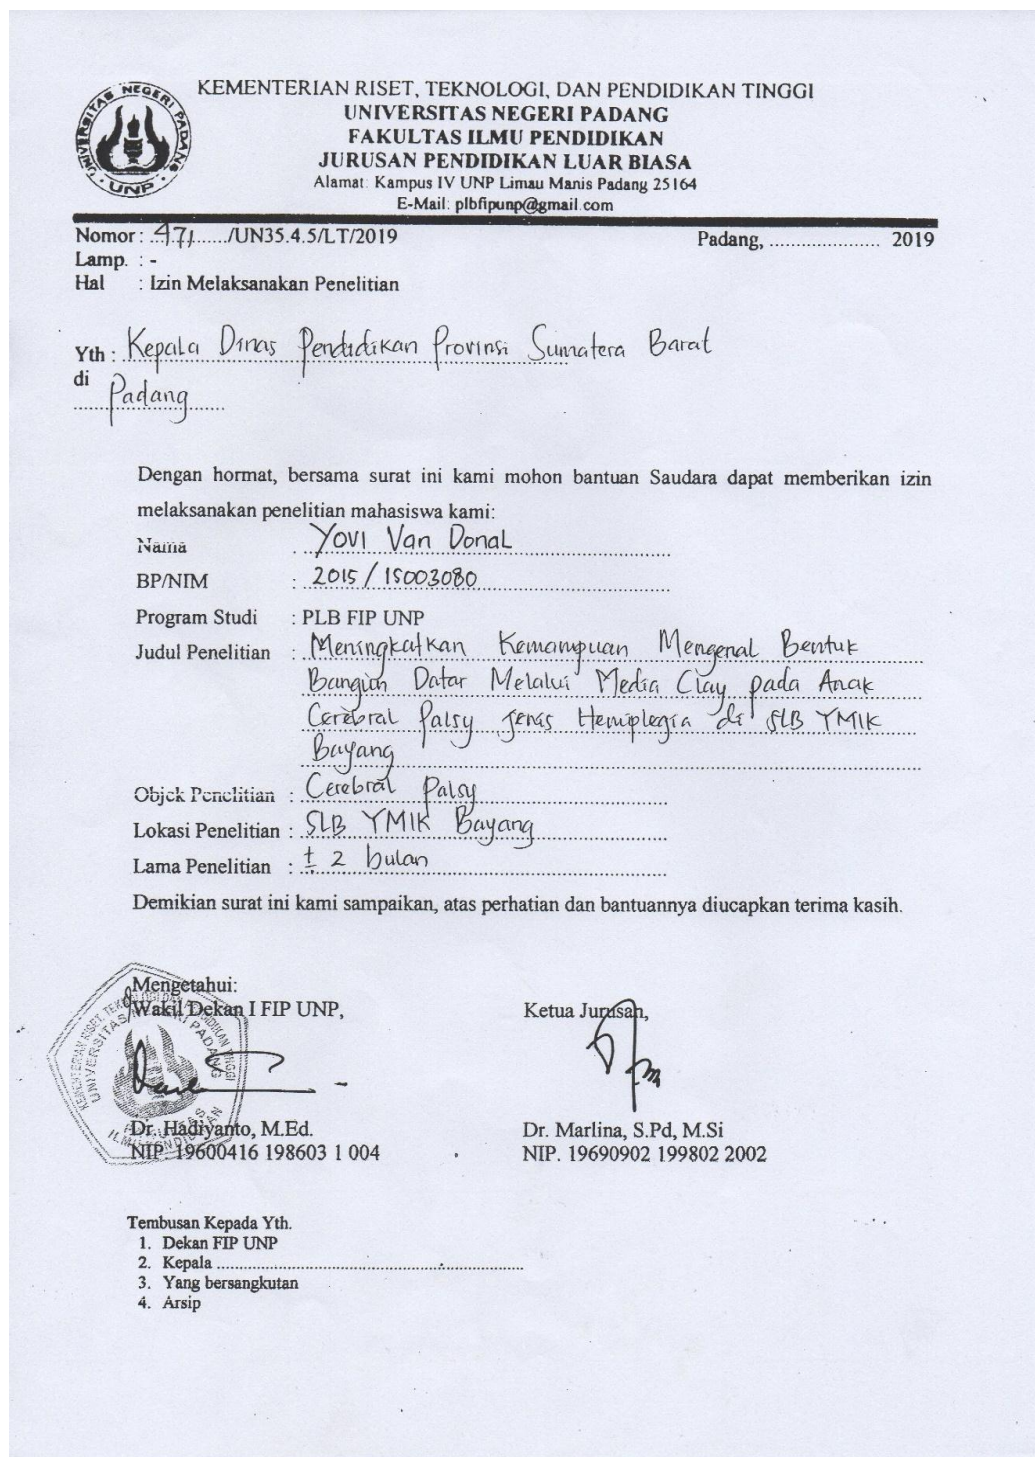 KEMENTERIAN RISET, TEKNOLOGI, DAN PENDIDIKAN TINGGI
UNIVERSITAS NEGERI PADANG
FAKULTAS ILMU PENDIDIKAN
JURUSAN PENDIDIKAN LUAR BIASA
Alamat: Kampus IV UNP Limau Manis Padang 25164
E-Mail: plbfipunp@gmail.com
UNIVERSITAS NEGERI PADANG
UNP
Nomor : ..471......./UN35.4.5/LT/2019 Padang, ..................... 2019
Lamp. : -
Hal : Izin Melaksanakan Penelitian
Yth : Kepala Dinas Pendidikan Provinsi Sumatera Barat
di
Padang
Dengan hormat, bersama surat ini kami mohon bantuan Saudara dapat memberikan izin
melaksanakan penelitian mahasiswa kami:
Nama : Yovi Van Donal
BP/NIM : 2015 / 15003080
Program Studi : PLB FIP UNP
Judul Penelitian : Meningkatkan Kemampuan Mengenal Bentuk
Bangun Datar Melalui Media Clay pada Anak
Cerebral Palsy jenis Hemiplegia di SLB YMIK
Bayang
Objek Penelitian : Cerebral Palsy
Lokasi Penelitian : SLB YMIK Bayang
Lama Penelitian : ± 2 bulan
Demikian surat ini kami sampaikan, atas perhatian dan bantuannya diucapkan terima kasih.
Mengetahui:
Wakil Dekan I FIP UNP, Ketua Jurusan,
KEMENTERIAN RISET, TEKNOLOGI DAN PENDIDIKAN TINGGI
UNIVERSITAS NEGERI PADANG
FAKULTAS
ILMU PENDIDIKAN
Dr. Hadiyanto, M.Ed. Dr. Marlina, S.Pd, M.Si
NIP. 19600416 198603 1 004 NIP. 19690902 199802 2002
Tembusan Kepada Yth.
1. Dekan FIP UNP
2. Kepala ......................................................................
3. Yang bersangkutan
4. Arsip